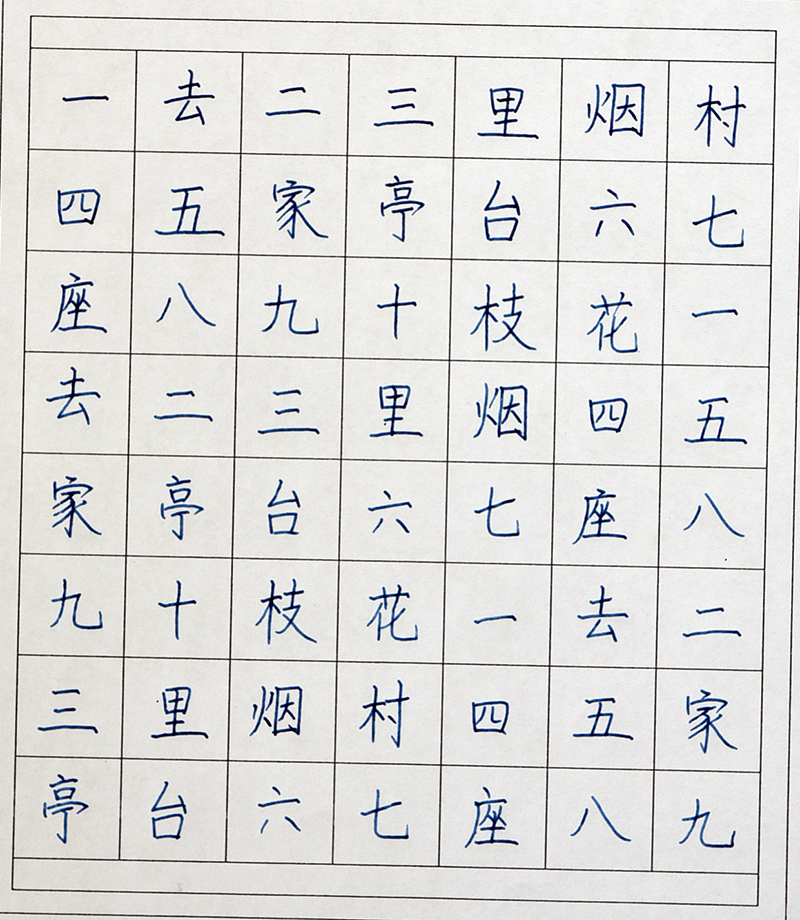 一去二三里烟村
四五家亭台六七
座八九十枝花一
去二三里烟四五
家亭台六七座八
九十枝花一去二
三里烟村四五家
亭台六七座八九